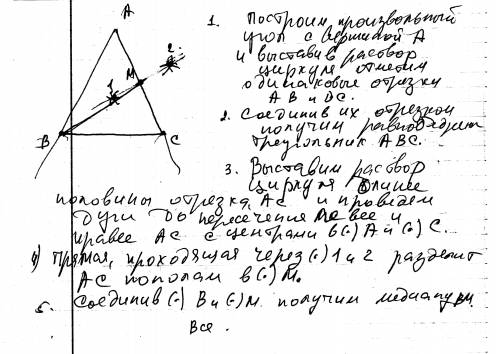 A
2.
M
1
B
C
1. Построим произвольный
угол с вершиной А
и выставив раствор
циркуля отметим
одинаковые отрезки
АВ и DC.
2. Соединив их отрезком
получим равнобедрен
треугольник АВС.
3. Выставим раствор
циркуля более
половины отрезка АС и проведем
дуги до пересечения левее и
правее АС с центрами в (·) А и (·) С.
4) Прямая, проходящая через (·) 1 и 2 разделит
АС пополам в (·) М.
5. Соединив (·) В и (·) М. получим медиану ВМ.
Все.